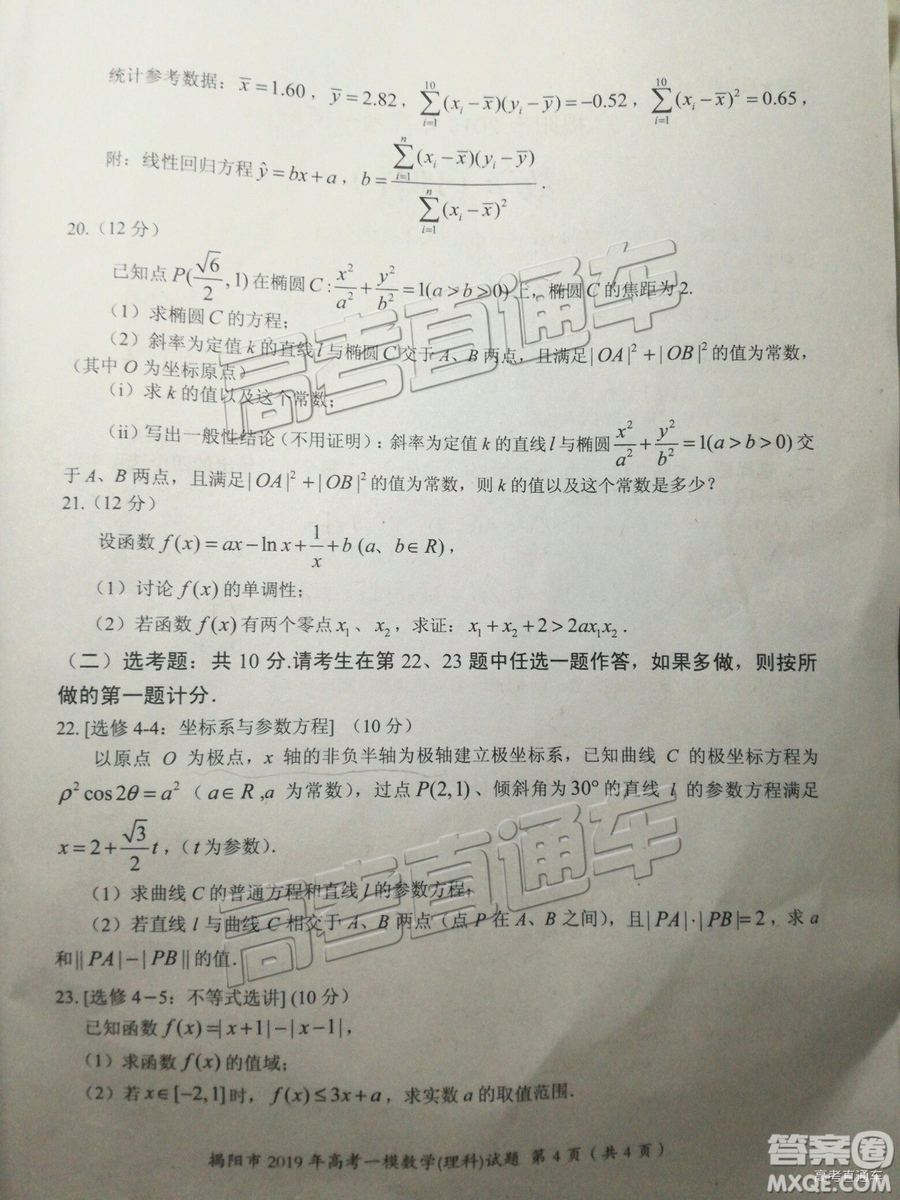 统计参考数据：x̄=1.60，ȳ=2.82，∑_{i=1}^{10}(x_i−x̄)(y_i−ȳ)=−0.52，∑_{i=1}^{10}(x_i−x̄)²=0.65，
附：线性回归方程ŷ=bx+a，b=∑_{i=1}^{n}(x_i−x̄)(y_i−ȳ)/∑_{i=1}^{n}(x_i−x̄)².
20.（12 分）
已知点P(√6/2,1)在椭圆C:x²/a²+y²/b²=1(a>b>0)上，椭圆C的焦距为2.
（1）求椭圆C的方程；
（2）斜率为定值k的直线l与椭圆C交于A、B两点，且满足|OA|²+|OB|²的值为常数，
（其中O为坐标原点）
（i）求k的值以及这个常数；
（ii）写出一般性结论（不用证明）：斜率为定值k的直线l与椭圆x²/a²+y²/b²=1(a>b>0)交
于A、B两点，且满足|OA|²+|OB|²的值为常数，则k的值以及这个常数是多少？
21.（12 分）
设函数f(x)=ax−ln x+1/x+b (a、b∈R)，
（1）讨论f(x)的单调性；
（2）若函数f(x)有两个零点x₁、x₂，求证：x₁+x₂+2>2ax₁x₂.
（二）选考题：共 10 分.请考生在第 22、23 题中任选一题作答，如果多做，则按所
做的第一题计分.
22. [选修 4-4：坐标系与参数方程]（10 分）
以原点 O 为极点，x 轴的非负半轴为极轴建立极坐标系，已知曲线 C 的极坐标方程为
ρ²cos2θ=a²（a∈R,a 为常数），过点P(2,1)、倾斜角为30°的直线 l 的参数方程满足
x=2+√3/2 t，（t为参数）.
（1）求曲线C的普通方程和直线l的参数方程；
（2）若直线l与曲线C相交于A、B两点（点P在A、B之间），且|PA|·|PB|=2，求a
和||PA|−|PB||的值.
23. [选修 4−5：不等式选讲] (10 分）
已知函数f(x)=|x+1|−|x−1|，
（1）求函数f(x)的值域；
（2）若x∈[−2,1]时，f(x)≤3x+a，求实数a的取值范围.
揭阳市 2019 年高考一模数学(理科)试题 第 4 页（共 4 页）
高考直通车
高考直通车
答案圈
MXQE.COM
高考直通车